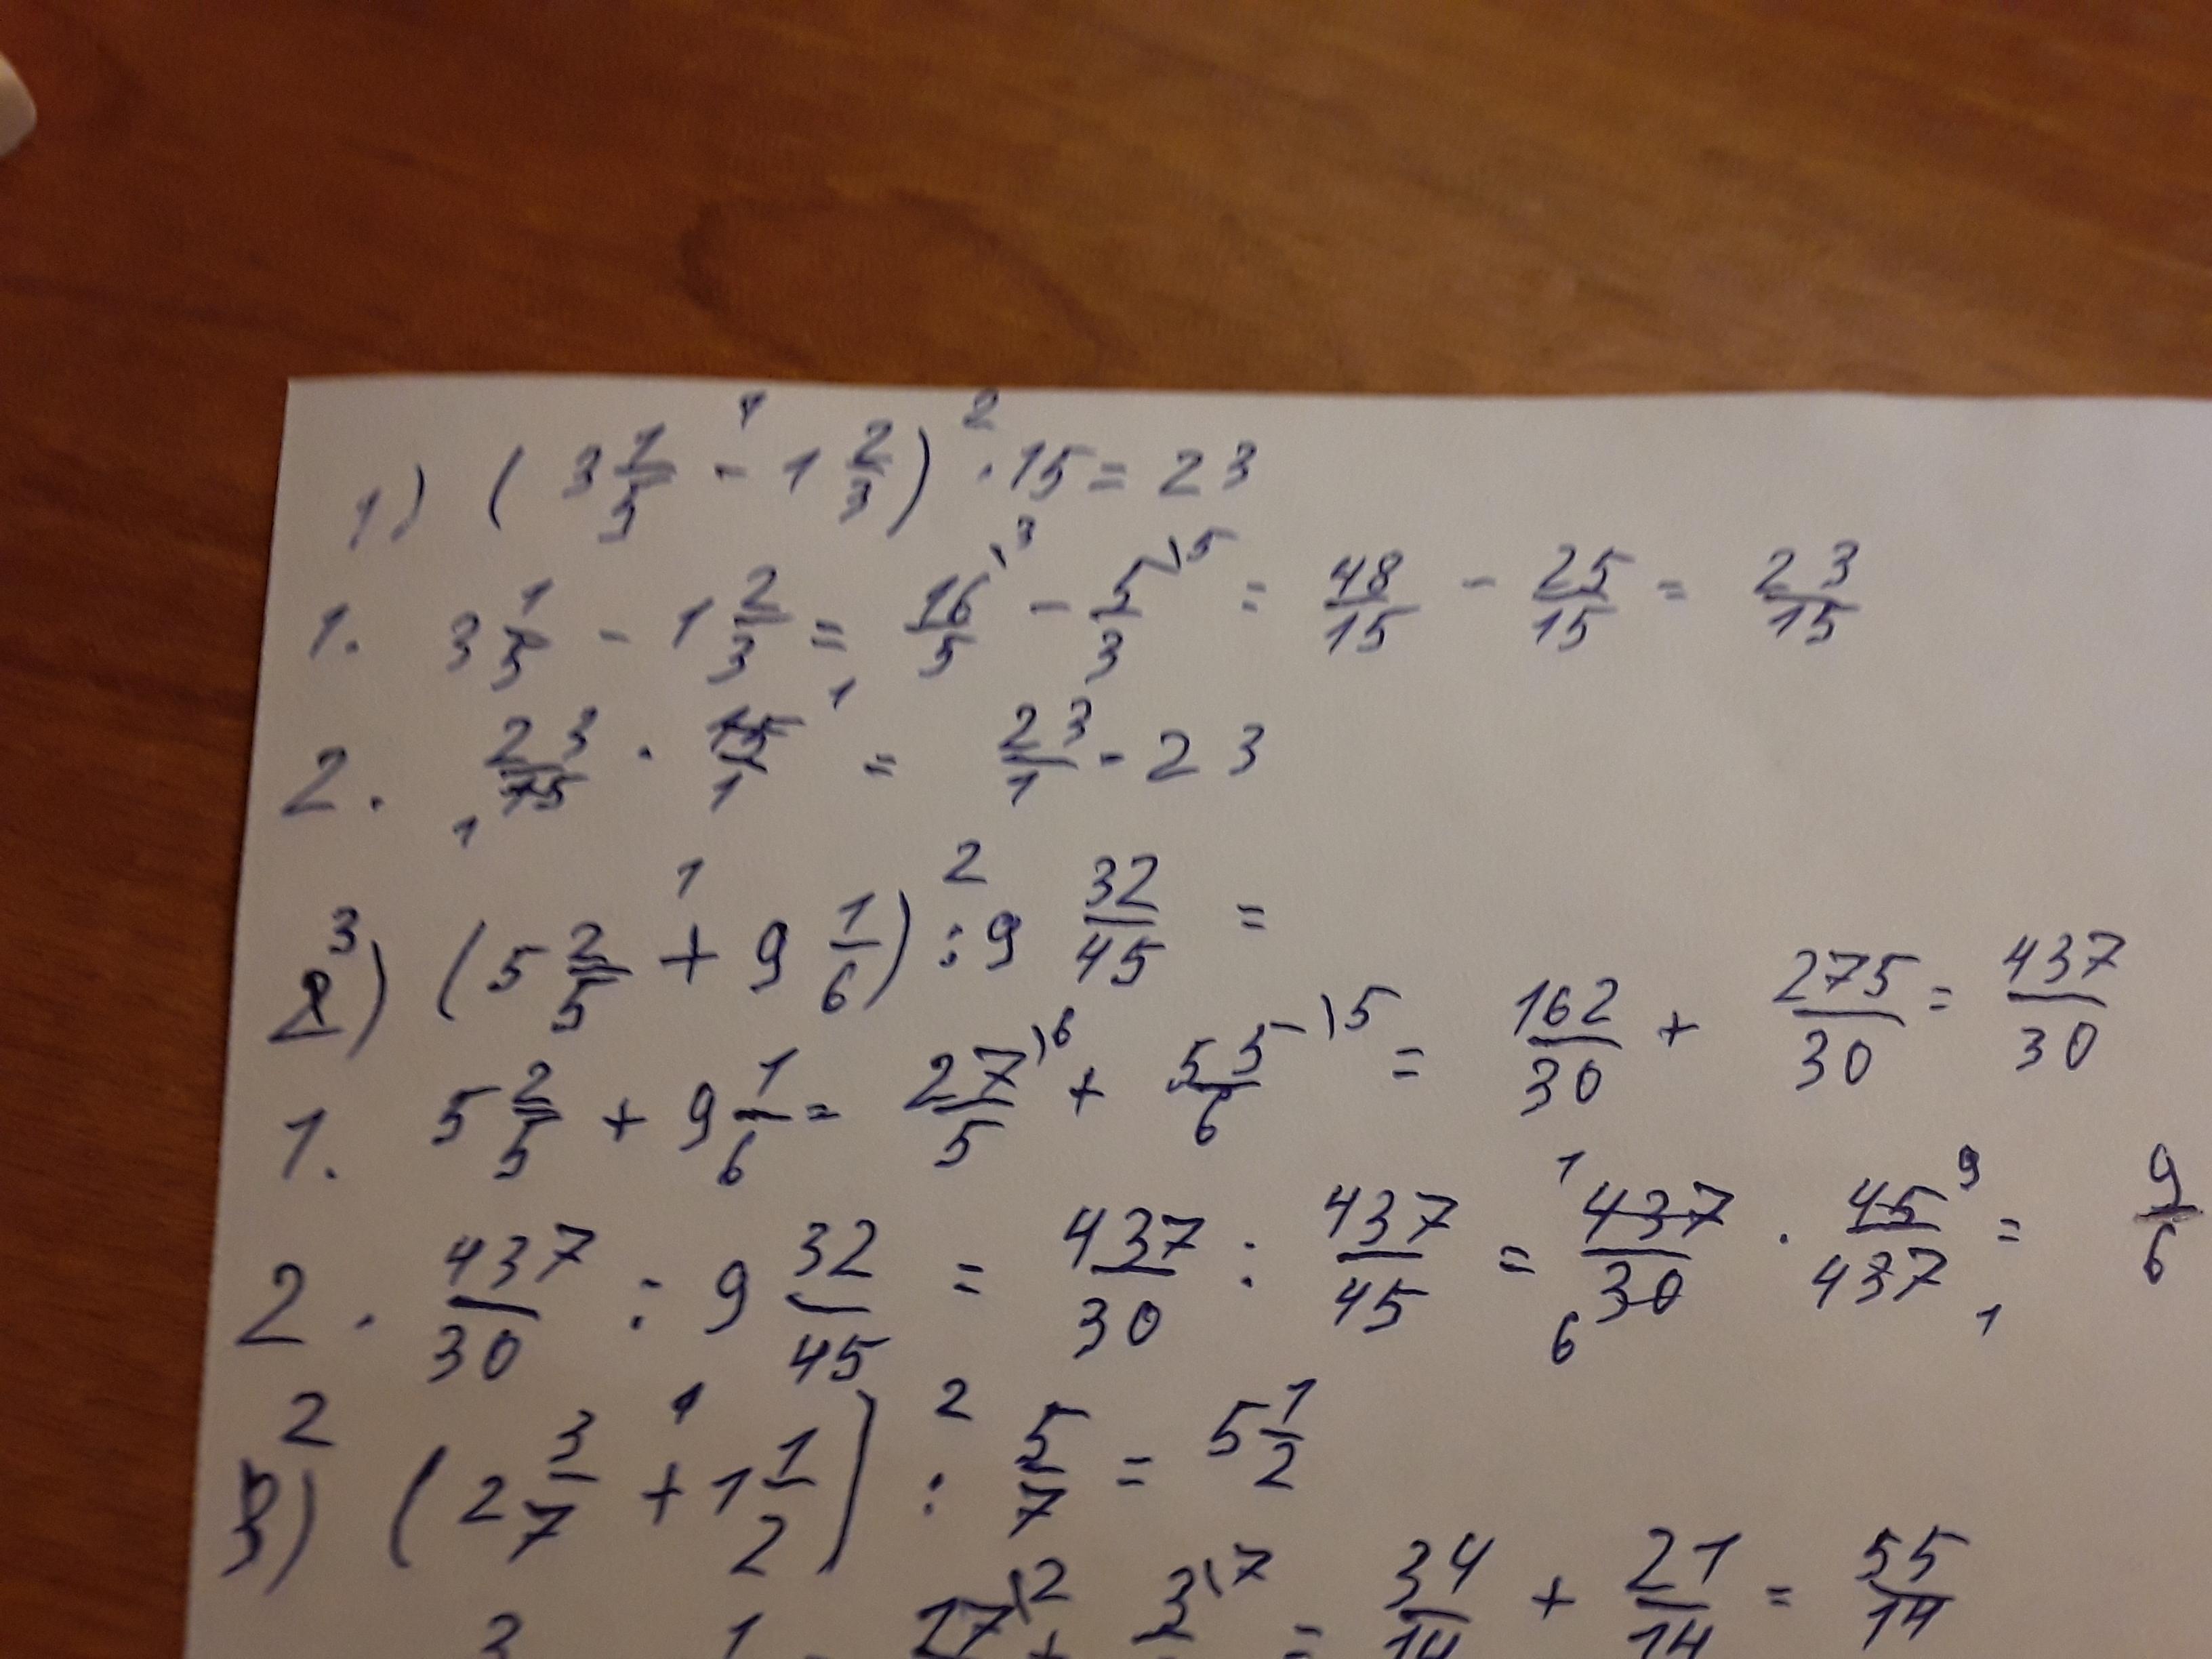 1) (3 1/5 - 1 2/3) · 15 = 23
1. 3 1/5 - 1 2/3 = 16/5 - 5/3 = 48/15 - 25/15 = 23/15
2. 23/15 · 15/1 = 23/1 - 23
3) (5 2/5 + 9 1/6) : 9 32/45 =
1. 5 2/5 + 9 1/6 = 27/5 + 55/6 = 162/30 + 275/30 = 437/30
2. 437/30 : 9 32/45 = 437/30 : 437/45 = 437/30 · 45/437 = 9/6
2) (2 3/7 + 1 1/2) : 5/7 = 5 1/2
34/14 + 21/14 = 55/14